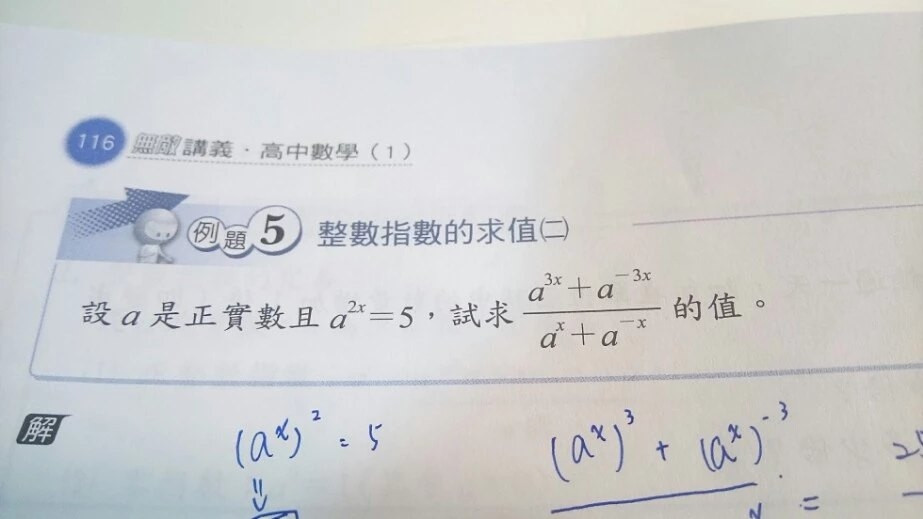 116 無敵講義．高中數學（1）
例題5 整數指數的求值㈡
設 a 是正實數且 a^{2x}=5，試求 \frac{a^{3x}+a^{-3x}}{a^{x}+a^{-x}} 的值。
解
(a^x)^2 = 5
(a^x)^3 + (a^x)^{-3}
=